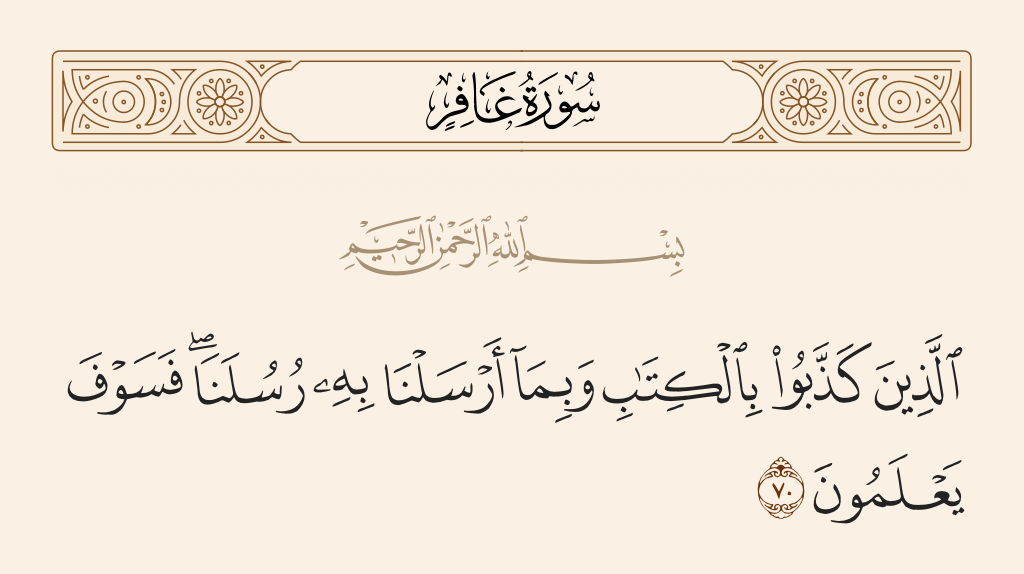 سُورَةُ غَافِرٍ
بِسْمِ ٱللَّهِ ٱلرَّحْمَٰنِ ٱلرَّحِيمِ
ٱلَّذِينَ كَذَّبُوا۟ بِٱلْكِتَٰبِ وَبِمَآ أَرْسَلْنَا بِهِۦ رُسُلَنَا ۖ فَسَوْفَ
يَعْلَمُونَ ٧٠